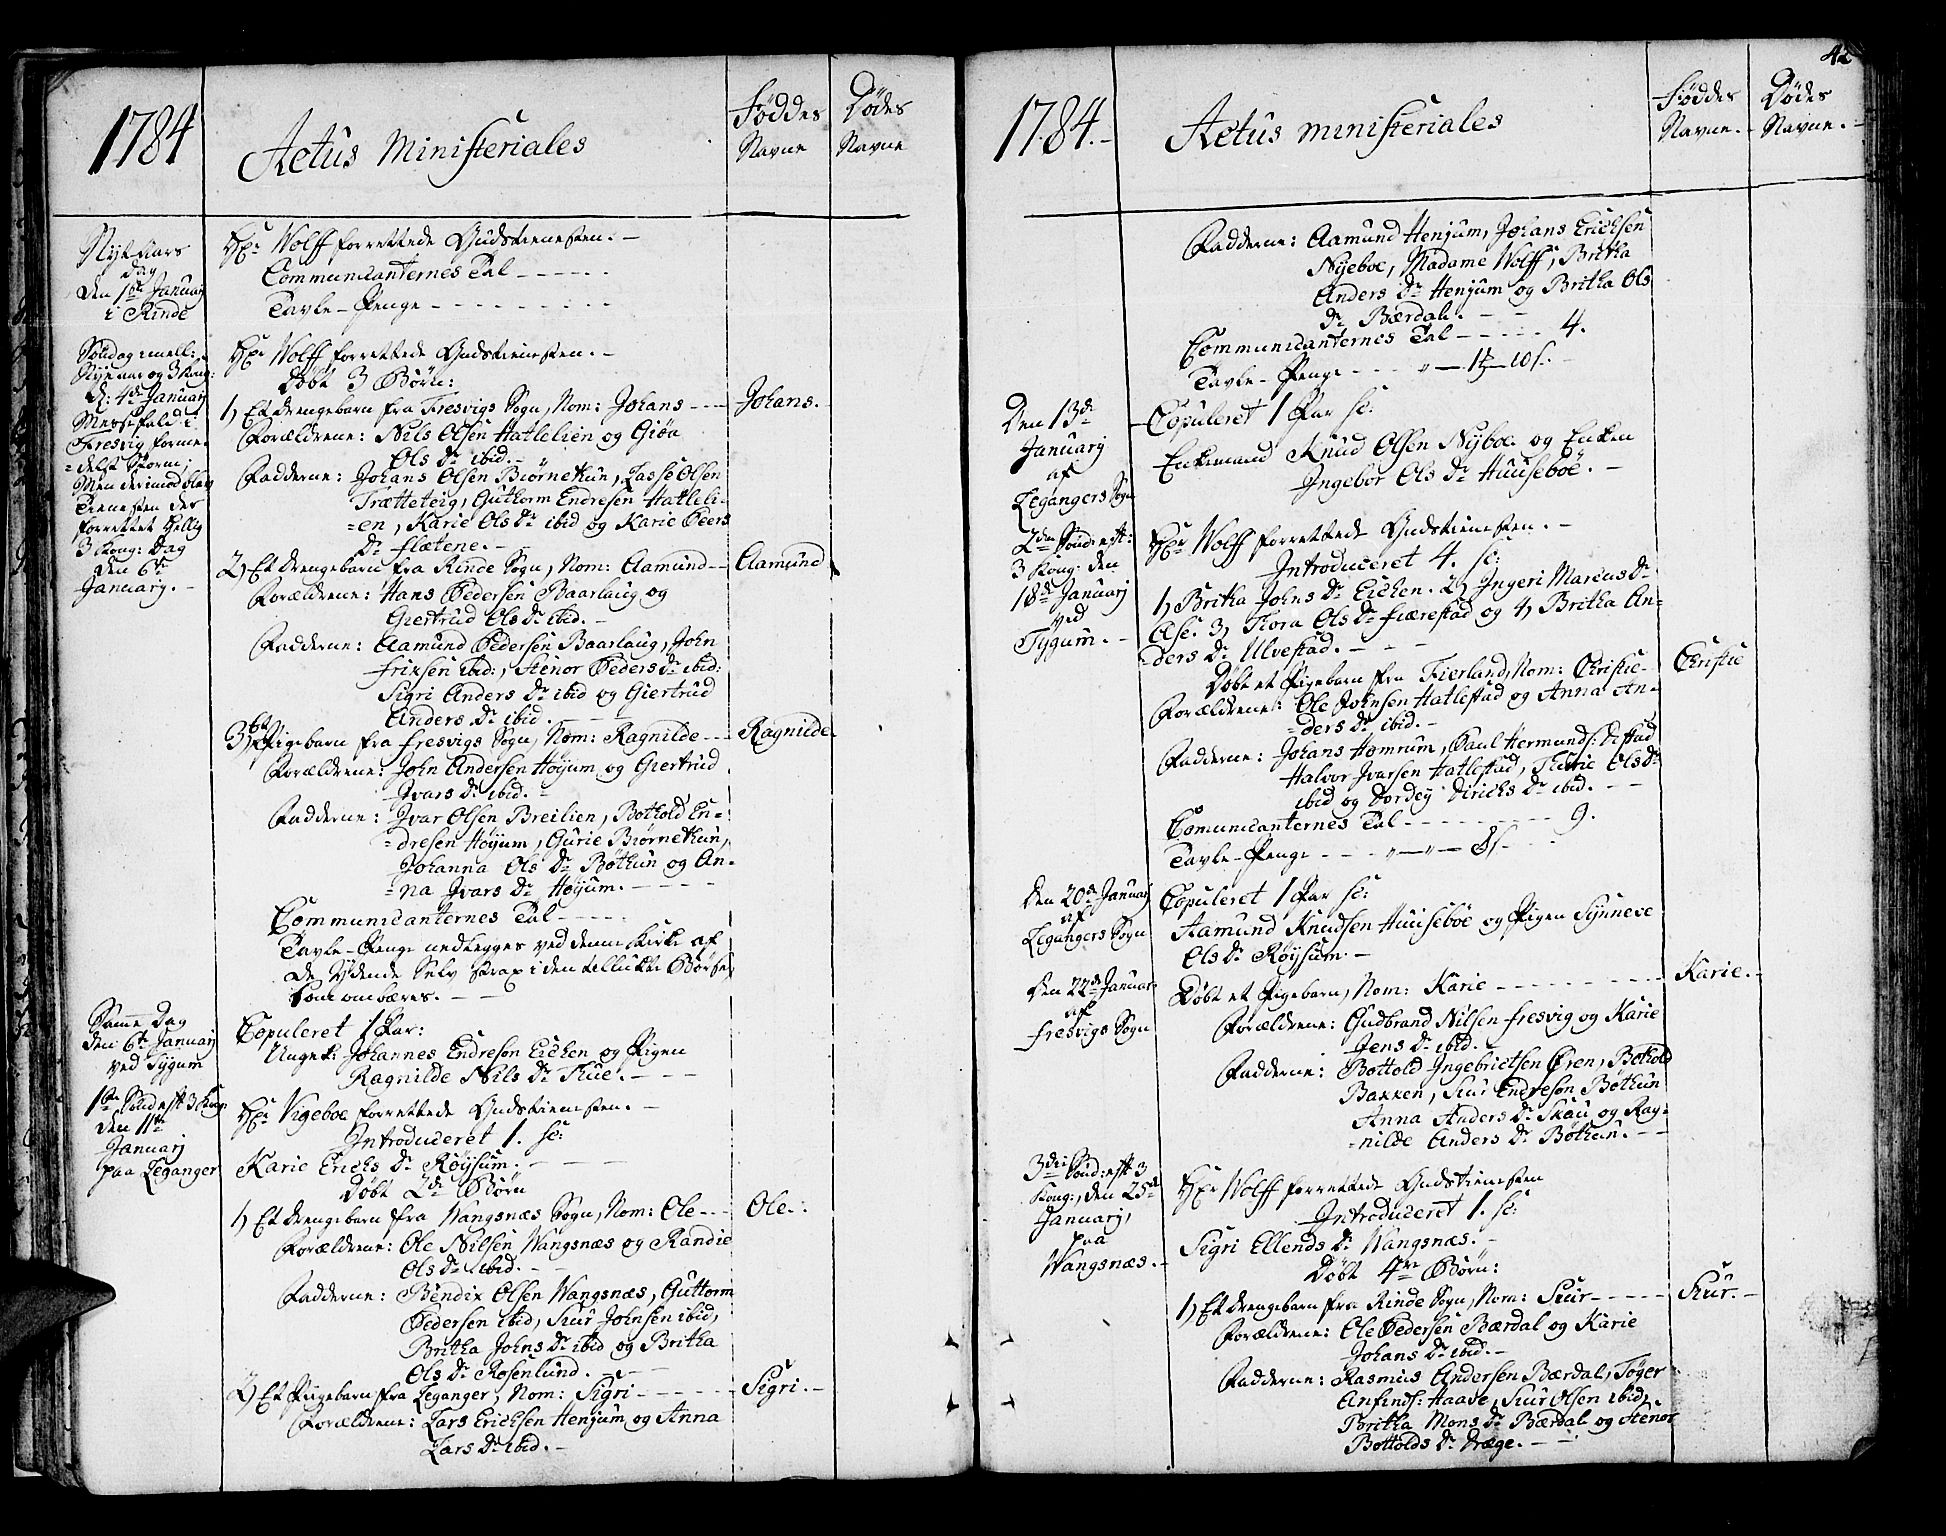 1784
Actus Ministeriales
Føddes Navne
Dødes Navne
Nyt Aars
dag
den 1ste Januarj
i Rinde
Hr. Wolff forrettede Gudstienesten. -
Communicanternes Tal
Tavle-Penge
Søndag imell:
Nyt aar og 3 Kong:
d: 4de Januarj
Messefald i
Fresvig forme-
delst Storm;
Men derimod blev
Tienesten der
forrettet Hellig
3 Kong: Dag
den 6te
Januarj. -
Hr. Wolff forrettede Gudstienesten. -
Døbt 3 Børn:
1, Et drengebarn fra Fresvigs Sogn, Nom: Johans - - -
Johans.
Forældrene: Nils Olsen Hatlelien og Giøa
Ols Dr ibid. -
Fadderne: Johans Olsen Biørnethun, Lasse Olsen
Trætteteig, Guthorm Endresen Hatleli-
=en, Karie Ols Dr ibid og Karie Peers
Dr flætene. -
2, Et drengebarn fra Rinde Sogn, Nom: Aamund - -
Aamund
Forældrene: Hans Pedersen Baarlaug og
Giertrud Ols Dr ibid. -
Fadderne: Aamund Pedersen Baarlaug, John
friksen ibid:, Stenor Peders Dr ibid:
Sigri Anders Dr ibid og Giertrud
Anders Dr ibid.
3, Et Pigebarn fra fresvigs Sogn, Nom: Ragnilde - - -
Ragnilde
Forældrene: John Andersen Høyum og Giertrud
Ivars Dr ibid. -
Fadderne: Ivar Olsen Breilien, Bothold En-
=dresen Høyum, Gurie Biørnethun,
Johanna Ols Dr Bøthun og An-
=na Ivars Dr Høyum. -
Communicanternes Tal
Tavle-Penge nedlegges ved denne Kirke af
de Ydende Selv strax i den tillukte Børse,
som ombæres. -
Samme Dag
den 6te Januarj
ved Tygum
Copuleret 1 Par:
Ungek: Johannes Endresen Eichen og Pigen
Ragnilde Nils Dr Thue. -
1ste Sønd eft 3 Kong
den 11te
Januarj
paa Leganger
Hr. Vigeboe forrettede Gudstienesten. -
Introduceret 1. sc:
Karie Erichs Dr Røysum. -
Døbt 2de Børn
1, Et drengebarn fra Wangsnæs Sogn, Nom: Ole - - -
Ole. :
Forældrene: Ole Nilsen Wangsnæs og Randie
Ols Dr ibid. -
Fadderne: Bendix Olsen Wangsnæs, Guttorm
Pedersen ibid, Siur Johnsen ibid,
Britha Johns Dr ibid og Britha
Ols Dr Rosenlund. -
2, Et Pigebarn fra Leganger, Nom: Sigri - - -
Sigri. -
Forældrene: Lars Erichsen Henjum og Anna
Lars Dr ibid. -
42
1784. -
Actus ministeriales
Føddes Navne. -
Dødes Navne. -
Fadderne: Aamund Henjum, Johans Erichsen
Nyeboe, Madame Wolff, Britha
Anders Dr Henjum og Britha Ols
Dr Bærdal. -
Communicanternes Tal - - - - 4.
Tavle-Penge
Den 13de
Januarj
af
Legangers Sogn
Copuleret 1 Par sc:
Enkemand Knud Olsen Nyboe og Enken
Ingebor Ols Dr Huuseboe. -
2den Sønd: eft:
3 Kong: den
18de Januarj
ved
Tygum. -
Hr. Wolff forrettede Gudstienesten. -
Introduceret 4. sc:
1, Britha Johns Dr Eichen. 2, Ingeri Marcus Dr
Olse. 3, Thora Ols Dr fiærestad og 4, Britha An=
=ders Dr Ulvestad. -
Døbt et Pigebarn fra Fierland, Nom: Christie -
Christie
Forældrene: Ole Johnsen Hatlestad og Anna An-
=ders Dr ibid. -
Fadderne: Johans Hamrum, Paul Hermunds:
Halvor Ivarsen Hatlestad, Thurie Ols Dr
ibid og Dordey Dirichs Dr ibid. - -
Comunicanternes Tal - - - - 9.
Tavle-Penge - - - 8 s.
Den 20de Januarj
af
Legangers Sogn
Copuleret 1 Par sc:
Aamund Knudsen Huuseboe og Pigen Synneve
Ols Dr Røysum. -
Den 22de Januar
af
fresvigs Sogn
Døbt et Pigebarn, Nom: Karie - - - -
Karie. -
Forældrene: Gudbrand Nilsen fresvig og Karie
Jens Dr ibid. -
Fadderne: Bottold Ingebrictsen Øren, Bothold
Baxxen, Siur Endresøn Bøthun
Anna Anders Dr Skau og Rag-
=nilde Anders Dr Bøthun. - -
3die Sønd: eft 3
Kong:, den 25de
Januarj,
paa
Wangsnæs. -
Hr. Wolff forrettede Gudstienesten
Introduceret 1. sc:
Sigri Ellends Dr Wangsnæs. -
Døbt 4re Børn:
1, Et drengebarn fra Rinde Sogn, Nom: Siur - - - -
Siur. -
Forældrene: Ole Pedersen Bærdal og Karie
Johans Dr ibid. -
Fadderne: Rasmus Andersen Bærdal, Tøger
Anfinds: Haave, Siur Olsen ibid,
Britha Mons Dr Bærdal og Stenor
Bottolds Dr Dræge. -